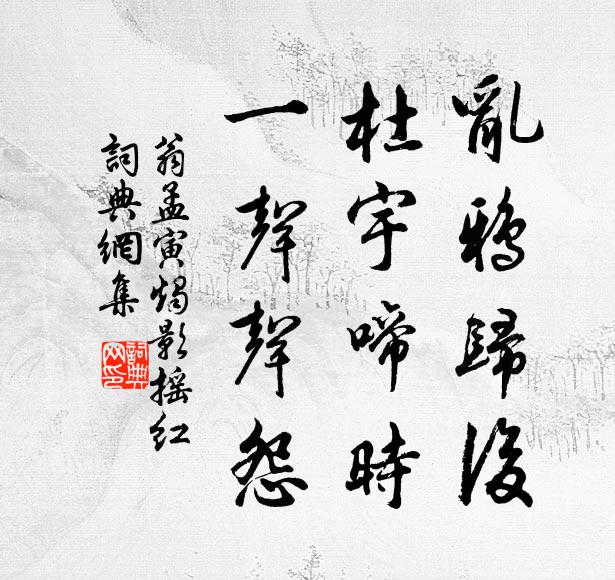 亂鴉歸後
杜宇啼時
一聲聲怨
翁孟寅燭影搖紅
詞典網集
詞典網印